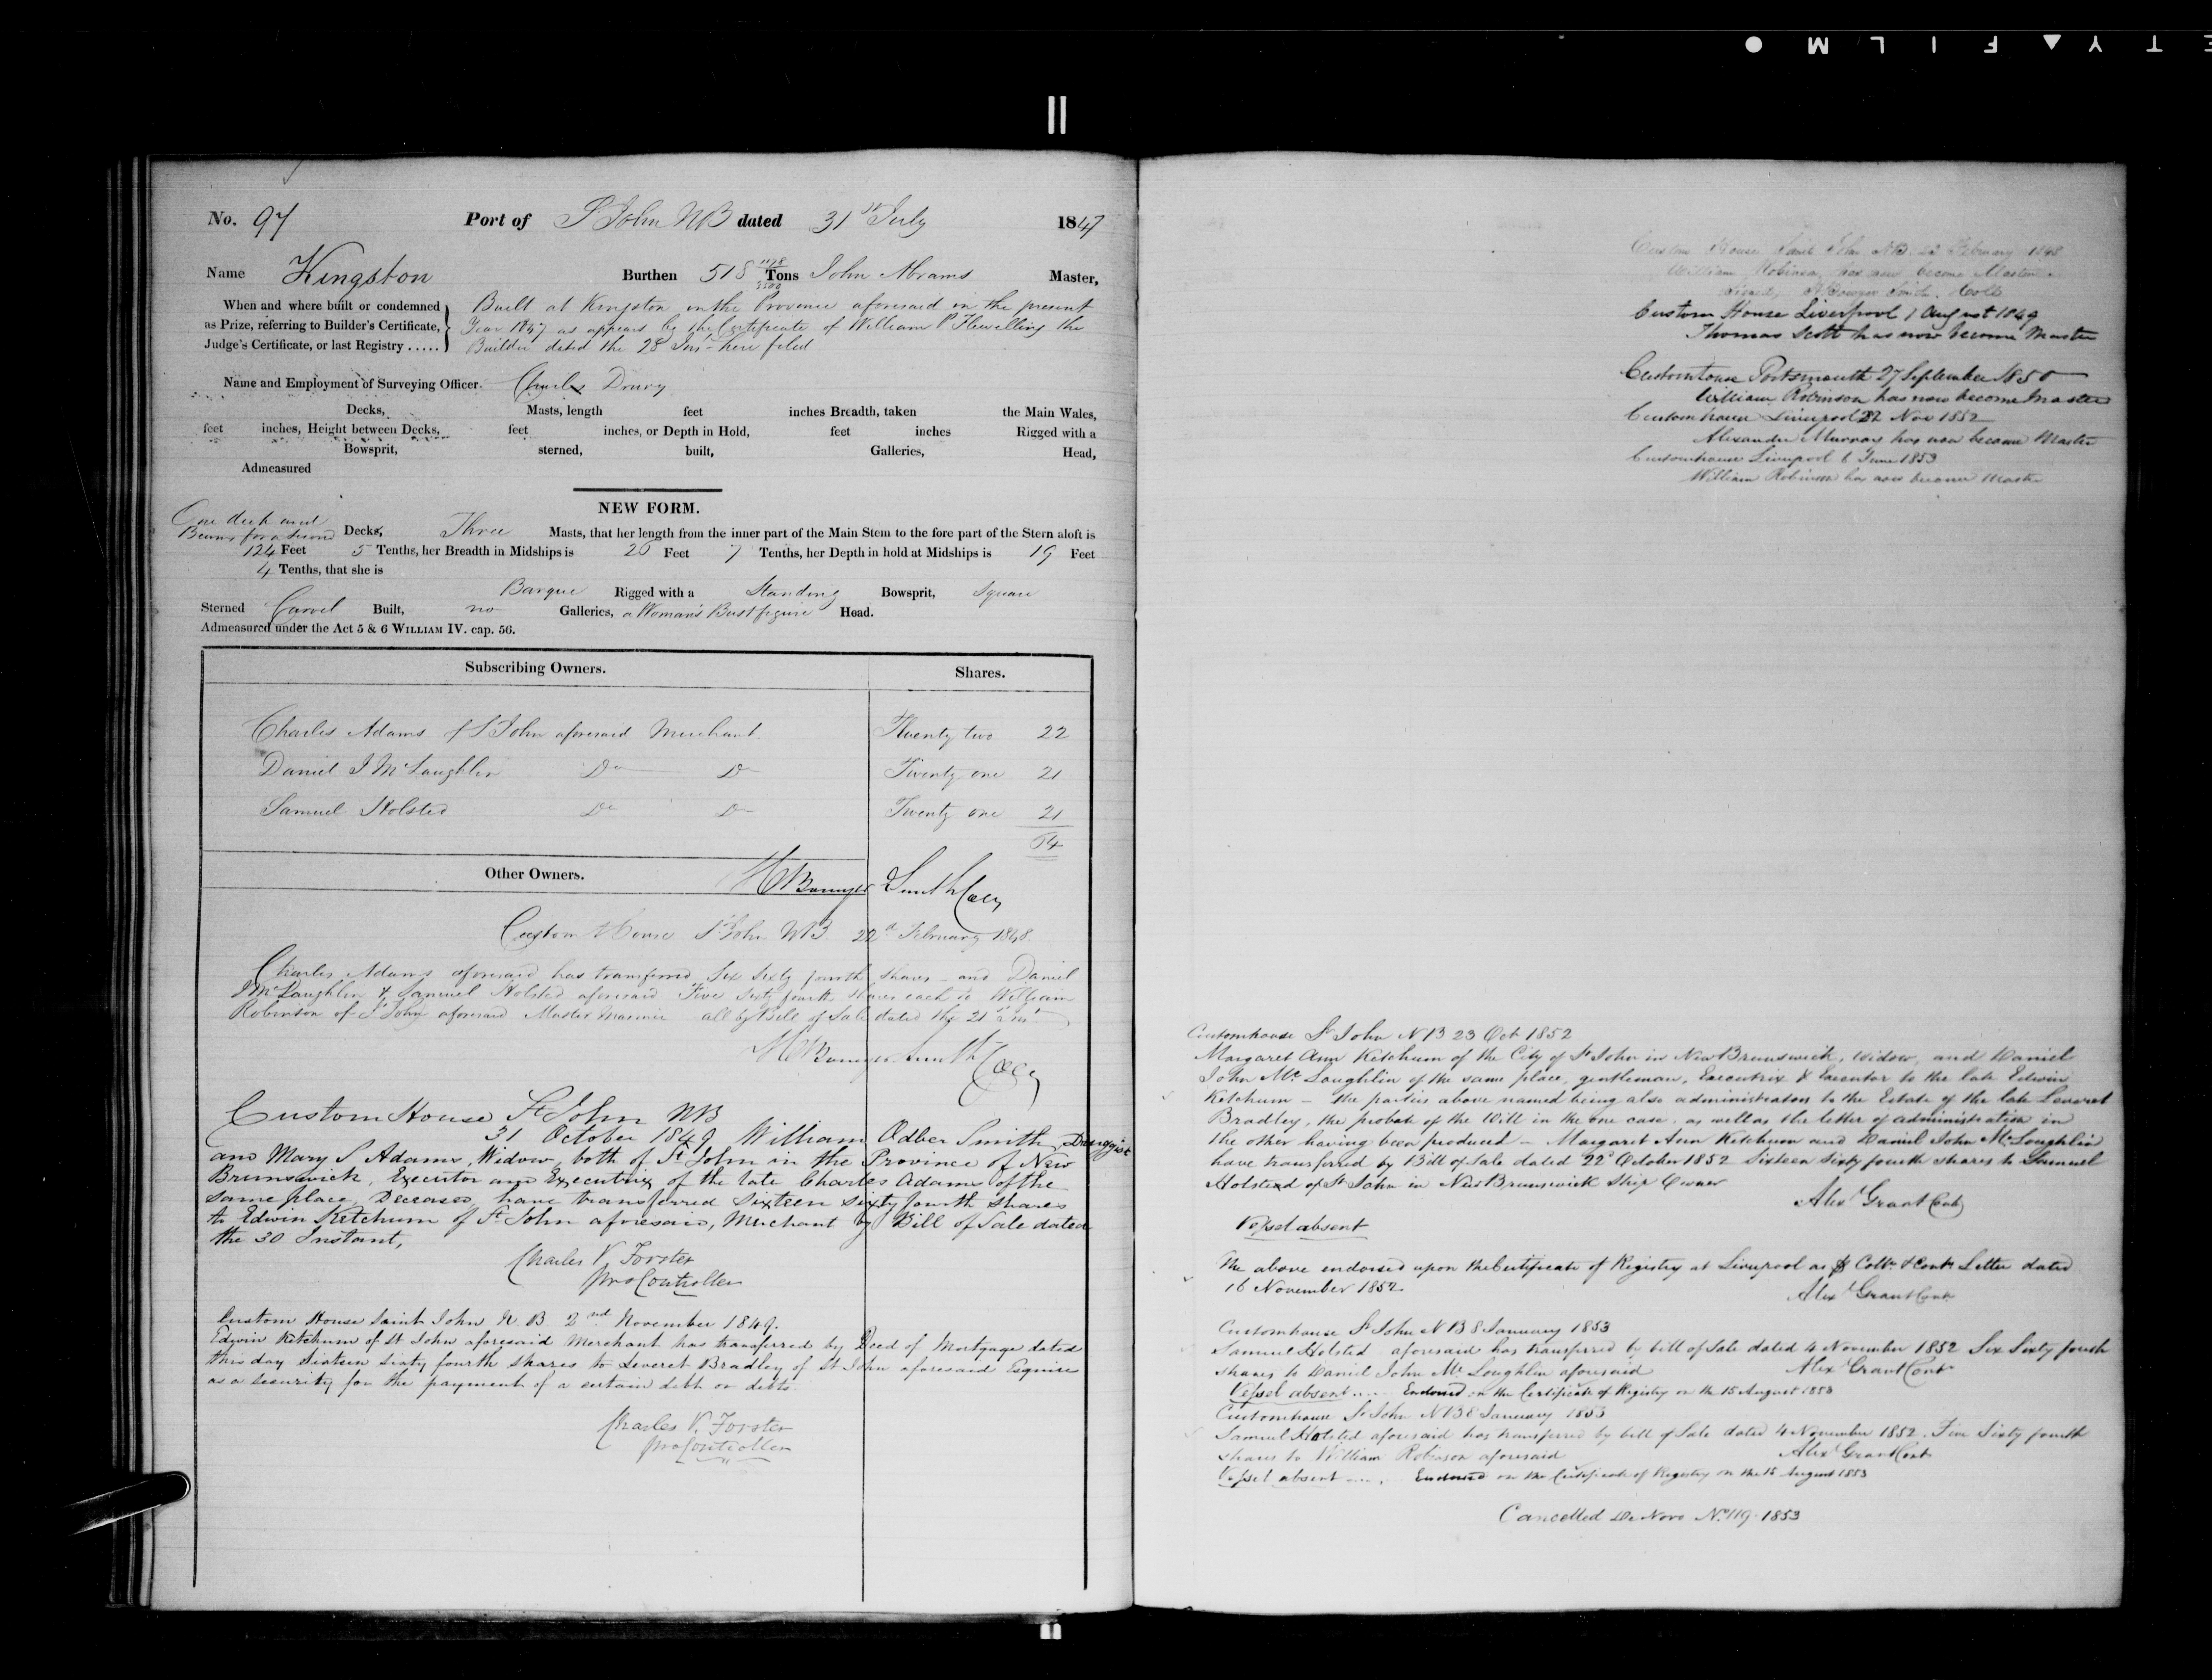 No. 97 Port of St John NB dated 31st July 1847
Name Kingston Burthen 518 Tons John Abrams Master,
When and where built or condemned
as Prize, referring to Builder's Certificate,
Judge's Certificate, or last Registry .....
Built at Kingston in the Province aforesaid in the present
Year 1847 as appears by the Certificate of William P Flewelling the
Builder dated the 28 Inst here filed
Name and Employment of Surveying Officer Charles Drury
Decks, Masts, length feet inches Breadth, taken the Main Wales,
feet inches, Height between Decks, feet inches, or Depth in Hold, feet inches Rigged with a
Bowsprit, sterned, built, Galleries, Head,
Admeasured
NEW FORM.
One deck and
Beams for a second Decks, Three Masts, that her length from the inner part of the Main Stem to the fore part of the Stern aloft is
124 Feet 5 Tenths, her Breadth in Midships is 26 Feet 7 Tenths, her Depth in hold at Midships is 19 Feet
4 Tenths, that she is
Barque Rigged with a Standing Bowsprit, Square
Sterned Carvel Built, no Galleries, a Woman's Bust figure Head.
Admeasured under the Act 5 & 6 WILLIAM IV. cap. 56.
Subscribing Owners. Shares.
Charles Adams of St John aforesaid Merchant Twenty two 22
Daniel J McLaughlin Do Do Twenty one 21
Samuel Holsted Do Do Twenty one 21
64
Other Owners.
H Bowyer Smith Coll
Custom House St John NB 22d February 1848
Charles Adams aforesaid has transferred Six Sixty fourth shares and Daniel
J McLaughlin & Samuel Holsted aforesaid Five Sixty fourth shares each to William
Robinson of St John aforesaid Master Mariner all by Bill of Sale dated the 21st inst
H Bowyer Smith Coll
Custom House St John NB
31 October 1849 William Odber Smith, Druggist
and Mary S Adams, Widow, both of St John in the Province of New
Brunswick, Executor and Executrix of the late Charles Adams of the
same place, Deceased, have transferred Sixteen sixty fourth shares
to Edwin Ketchum of St John aforesaid, Merchant by Bill of Sale dated
the 30 Instant,
Charles V Forster
pro Controller
Custom House Saint John N. B. 2nd November 1849.
Edwin Ketchum of St John aforesaid Merchant has transferred by Deed of Mortgage dated
this day Sixteen Sixty fourth Shares to Leveret Bradley of St John aforesaid Esquire
as a security for the payment of a certain debt or debts
Charles V. Forster
pro Controller
Custom House Saint John NB 22 February 1848
William Robinson has now become Master
Signed, H Bowyer Smith. Coll
Custom House Liverpool 1 August 1849
Thomas Scott has now become Master
Customhouse Portsmouth 27 September 1850
William Robinson has now become Master
Customhouse Liverpool 22 Nov 1852
Alexander Murray has now become Master
Customhouse Liverpool 6 June 1853
William Robinson has now become Master
Customhouse St John NB 23 Oct 1852
Margaret Ann Ketchum of the City of St John in New Brunswick, Widow, and Daniel
John McLoughlin of the same place, gentleman, Executrix & Executor to the late Edwin
Ketchum – the parties above named being also administrators to the Estate of the late Leveret
Bradley, the probate of the Will in the one case, as well as the letter of administration in
the other having been produced – Margaret Ann Ketchum and Daniel John McLoughlin
have transferred by Bill of Sale dated 22d October 1852 Sixteen Sixty fourth shares to Samuel
Holsted of St John in New Brunswick Ship Owner
Alex Grant Cont
Vessel absent
The above endorsed upon the Certificate of Registry at Liverpool as Collr & Contr Letter dated
16 November 1852
Alex Grant Cont
Customhouse St John NB 8 January 1853
Samuel Holsted aforesaid has transferred by bill of Sale dated 4 November 1852 Six Sixty fourth
shares to Daniel John McLoughlin aforesaid Alex Grant Cont
Vessel absent .... Endorsed on the Certificate of Registry on the 15 August 1853
Customhouse St John NB 8 January 1853
Samuel Holsted aforesaid has transferred by bill of Sale dated 4 November 1852. Five Sixty fourth
shares to William Robinson aforesaid Alex Grant Cont
Vessel absent .... Endorsed on the Certificate of Registry on the 15 August 1853
Cancelled De Novo No 119. 1853